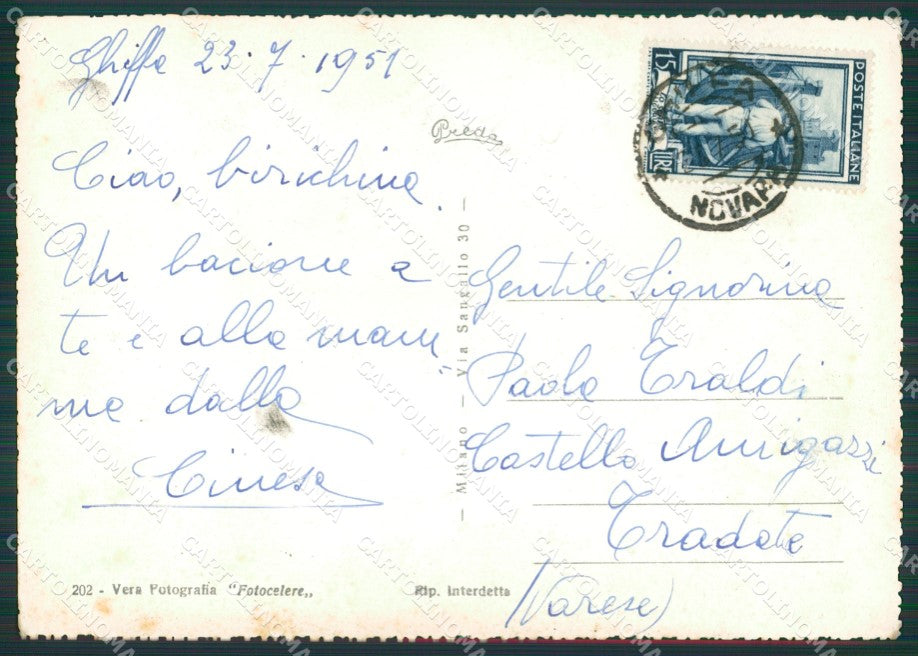 Ghiffa 23.7.1951
Preda
Ciao, birichina.
Un bacione a
te e alla mam
ma dalla
Cinesa
202 - Vera Fotografia "Fotocelere„
Rip. Interdetta
Milano - Via Sangallo 30 -
15 LIRE
POSTE ITALIANE
NOVARA
Gentile Signorina
Paola Traldi
Castello
Tradate
(Varese)
CARTOLINOMANIA